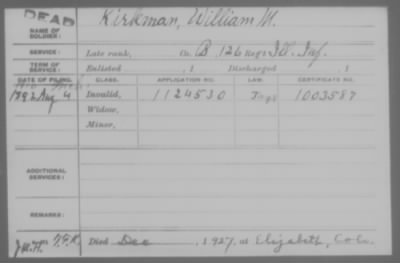 DEAD
Kirkman, William M.
NAME OF SOLDIER:
SERVICE: Late rank, Co. B, 126 Reg't Ill. Inf.
TERM OF SERVICE: Enlisted , 1 Discharged , 1
DATE OF FILING. CLASS. APPLICATION NO. LAW. CERTIFICATE NO.
1892 Aug 4 Invalid, 1124530 1003587
Widow,
Minor,
ADDITIONAL SERVICES:
REMARKS:
Died Dec , 1927, at Elizabeth, Colo.